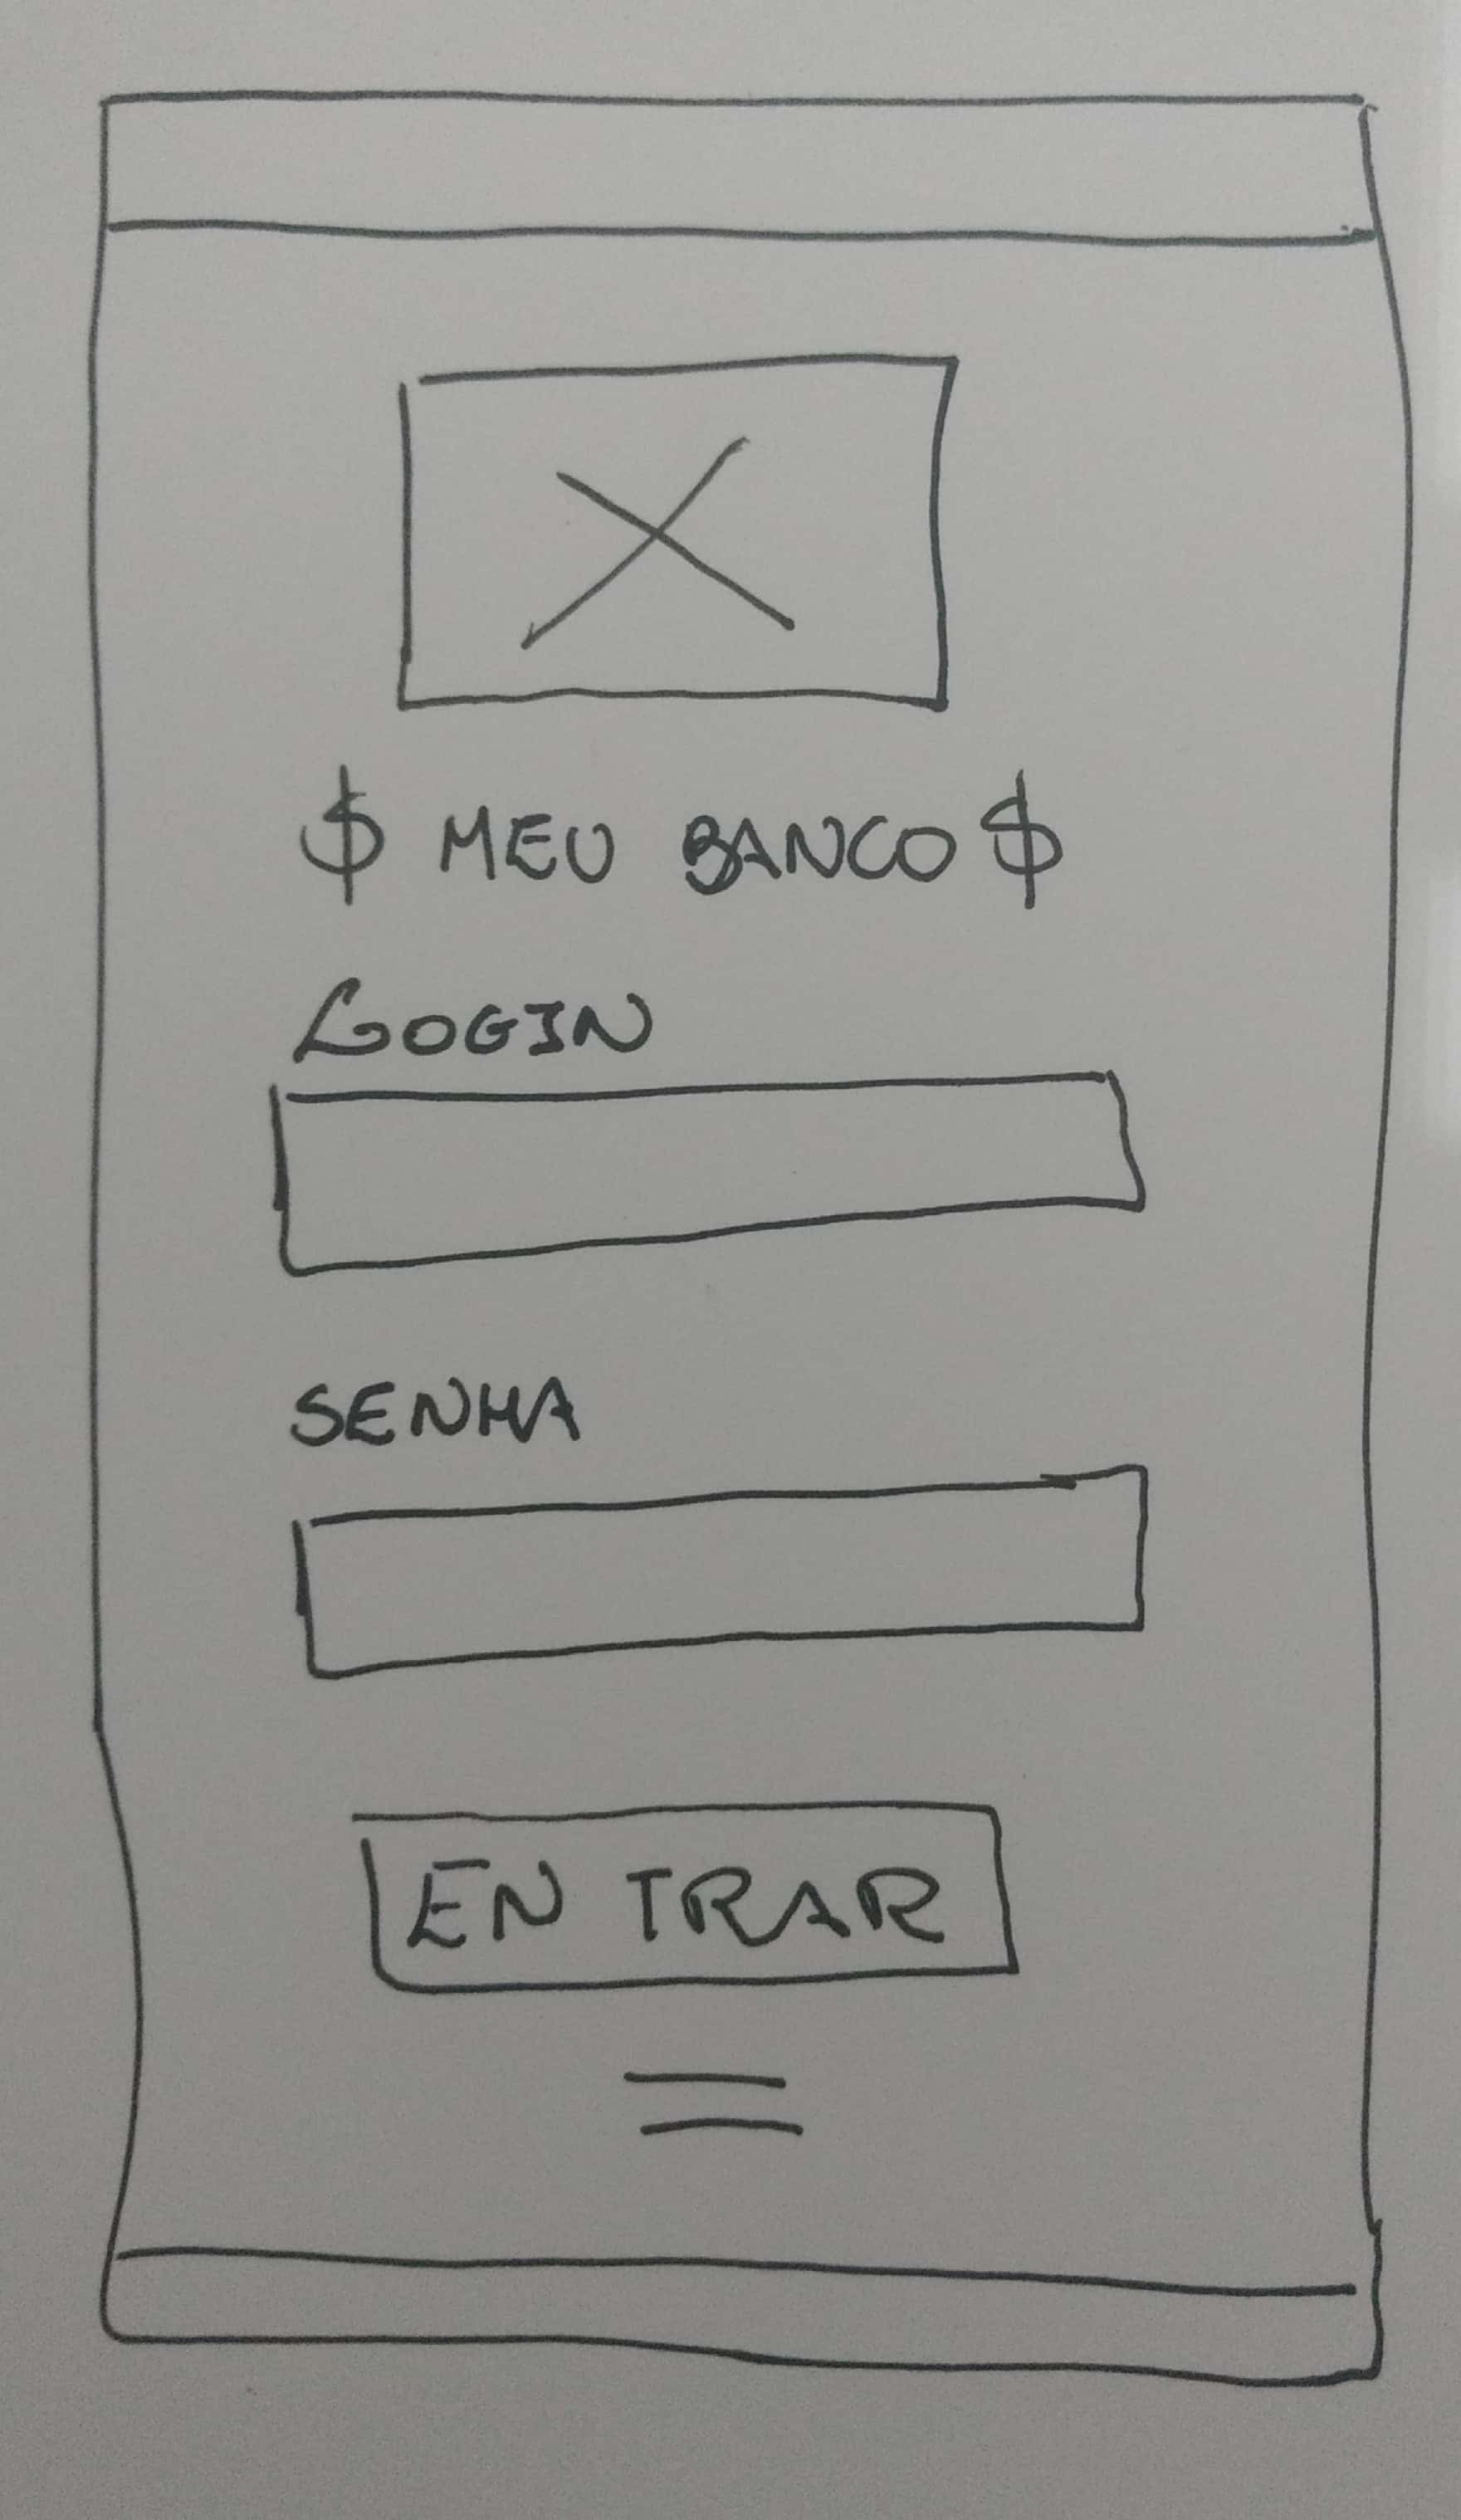 $ MEU BANCO $
LOGIN
SENHA
ENTRAR